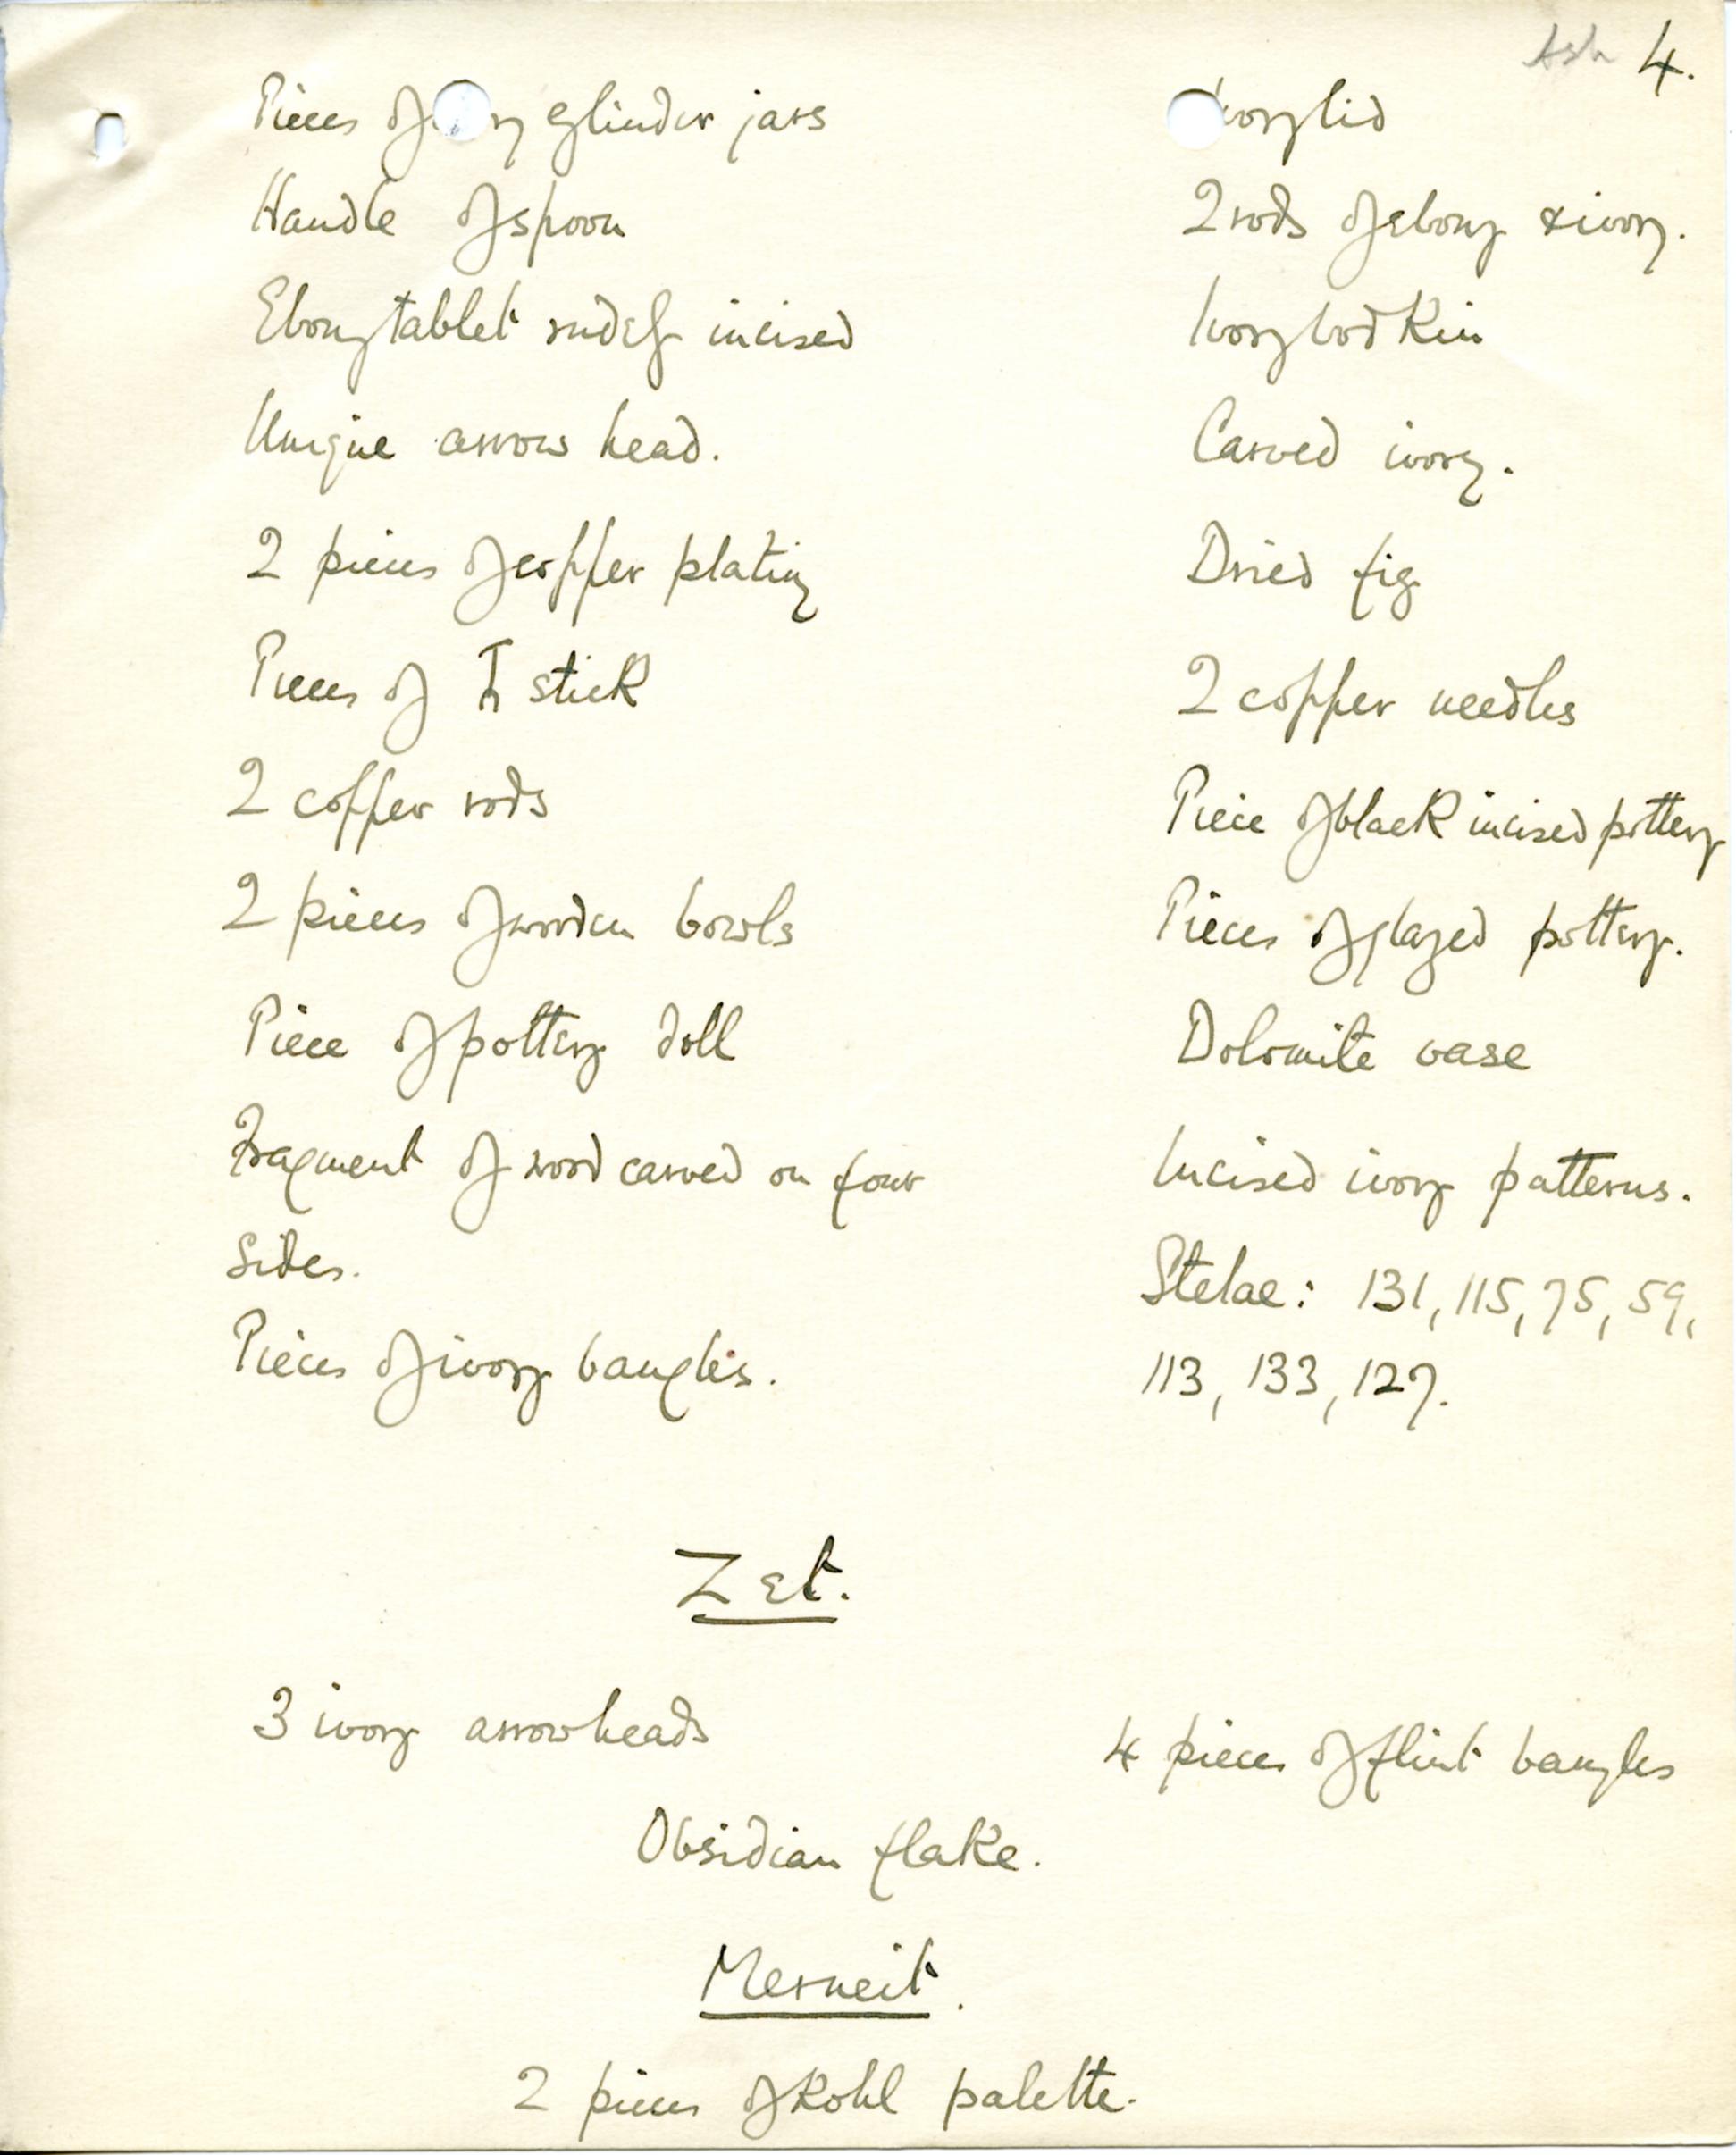 Ash 4.
Pieces of cylinder jars
Handle of spoon
Ebony tablet rudely incised
Unique arrow head.
2 pieces of copper plating
Pieces of stick
2 copper rods
2 pieces of wooden bowls
Piece of pottery doll
Fragment of wood carved on four
sides.
Pieces of ivory bangles.
Ivory lid
2 rods of ebony & ivory.
Ivory bodkin
Carved ivory.
Dried fig
2 copper needles
Piece of black incised pottery
Pieces of glazed pottery.
Dolomite vase
Incised ivory patterns.
Stelae: 131, 115, 75, 59,
113, 133, 127.
Zet.
3 ivory arrowheads
4 pieces of flint bangles
Obsidian flake.
Merneit.
2 pieces of Kohl palette.